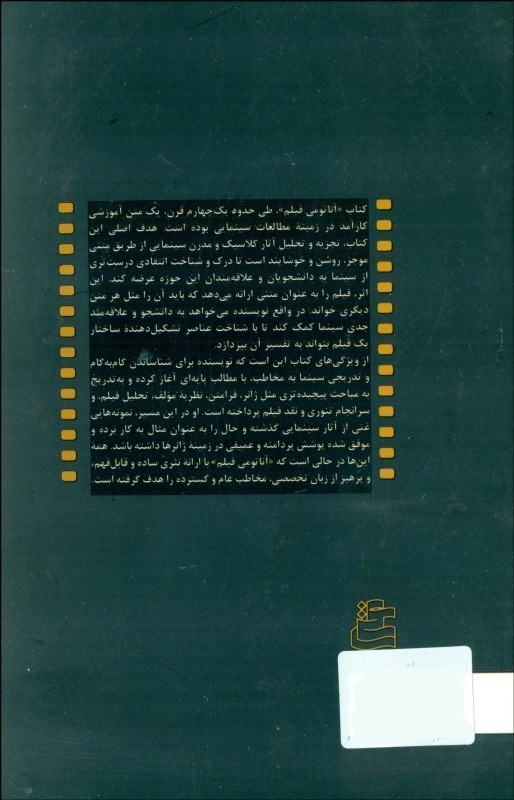 کتاب «آناتومی فیلم»، طی حدود یک‌چهارم قرن، یک متن آموزشی
کارآمد در زمینهٔ مطالعات سینمایی بوده است. هدف اصلی این
کتاب، تجزیه و تحلیل آثار کلاسیک و مدرن سینمایی از طریق متنی
موجز، روشن و خوشایند است تا درک و شناخت انتقادی درست‌تری
از سینما به دانشجویان و علاقه‌مندان این حوزه عرضه کند. این
اثر، فیلم را به عنوان متنی ارائه می‌دهد که باید آن را مثل هر متن
دیگری خواند. در واقع نویسنده می‌خواهد به دانشجو و علاقه‌مند
جدی سینما کمک کند تا با شناخت عناصر تشکیل‌دهندهٔ ساختار
یک فیلم بتواند به تفسیر آن بپردازد.
از ویژگی‌های کتاب این است که نویسنده برای شناساندن گام‌به‌گام
و تدریجی سینما به مخاطب، با مطالب پایه‌ای آغاز کرده و به‌تدریج
به مباحث پیچیده‌تری مثل ژانر، فرامتن، نظریهٔ مؤلف، تحلیل فیلم، و
سرانجام تئوری و نقد فیلم پرداخته است. او در این مسیر، نمونه‌هایی
غنی از آثار سینمایی گذشته و حال را به عنوان مثال به کار برده و
موفق شده پوشش پردامنه و عمیقی در زمینهٔ ژانرها داشته باشد. همهٔ
این‌ها در حالی است که «آناتومی فیلم» با ارائه نثری ساده و قابل‌فهم،
و پرهیز از زبان تخصصی، مخاطب عام و گسترده را هدف گرفته است.